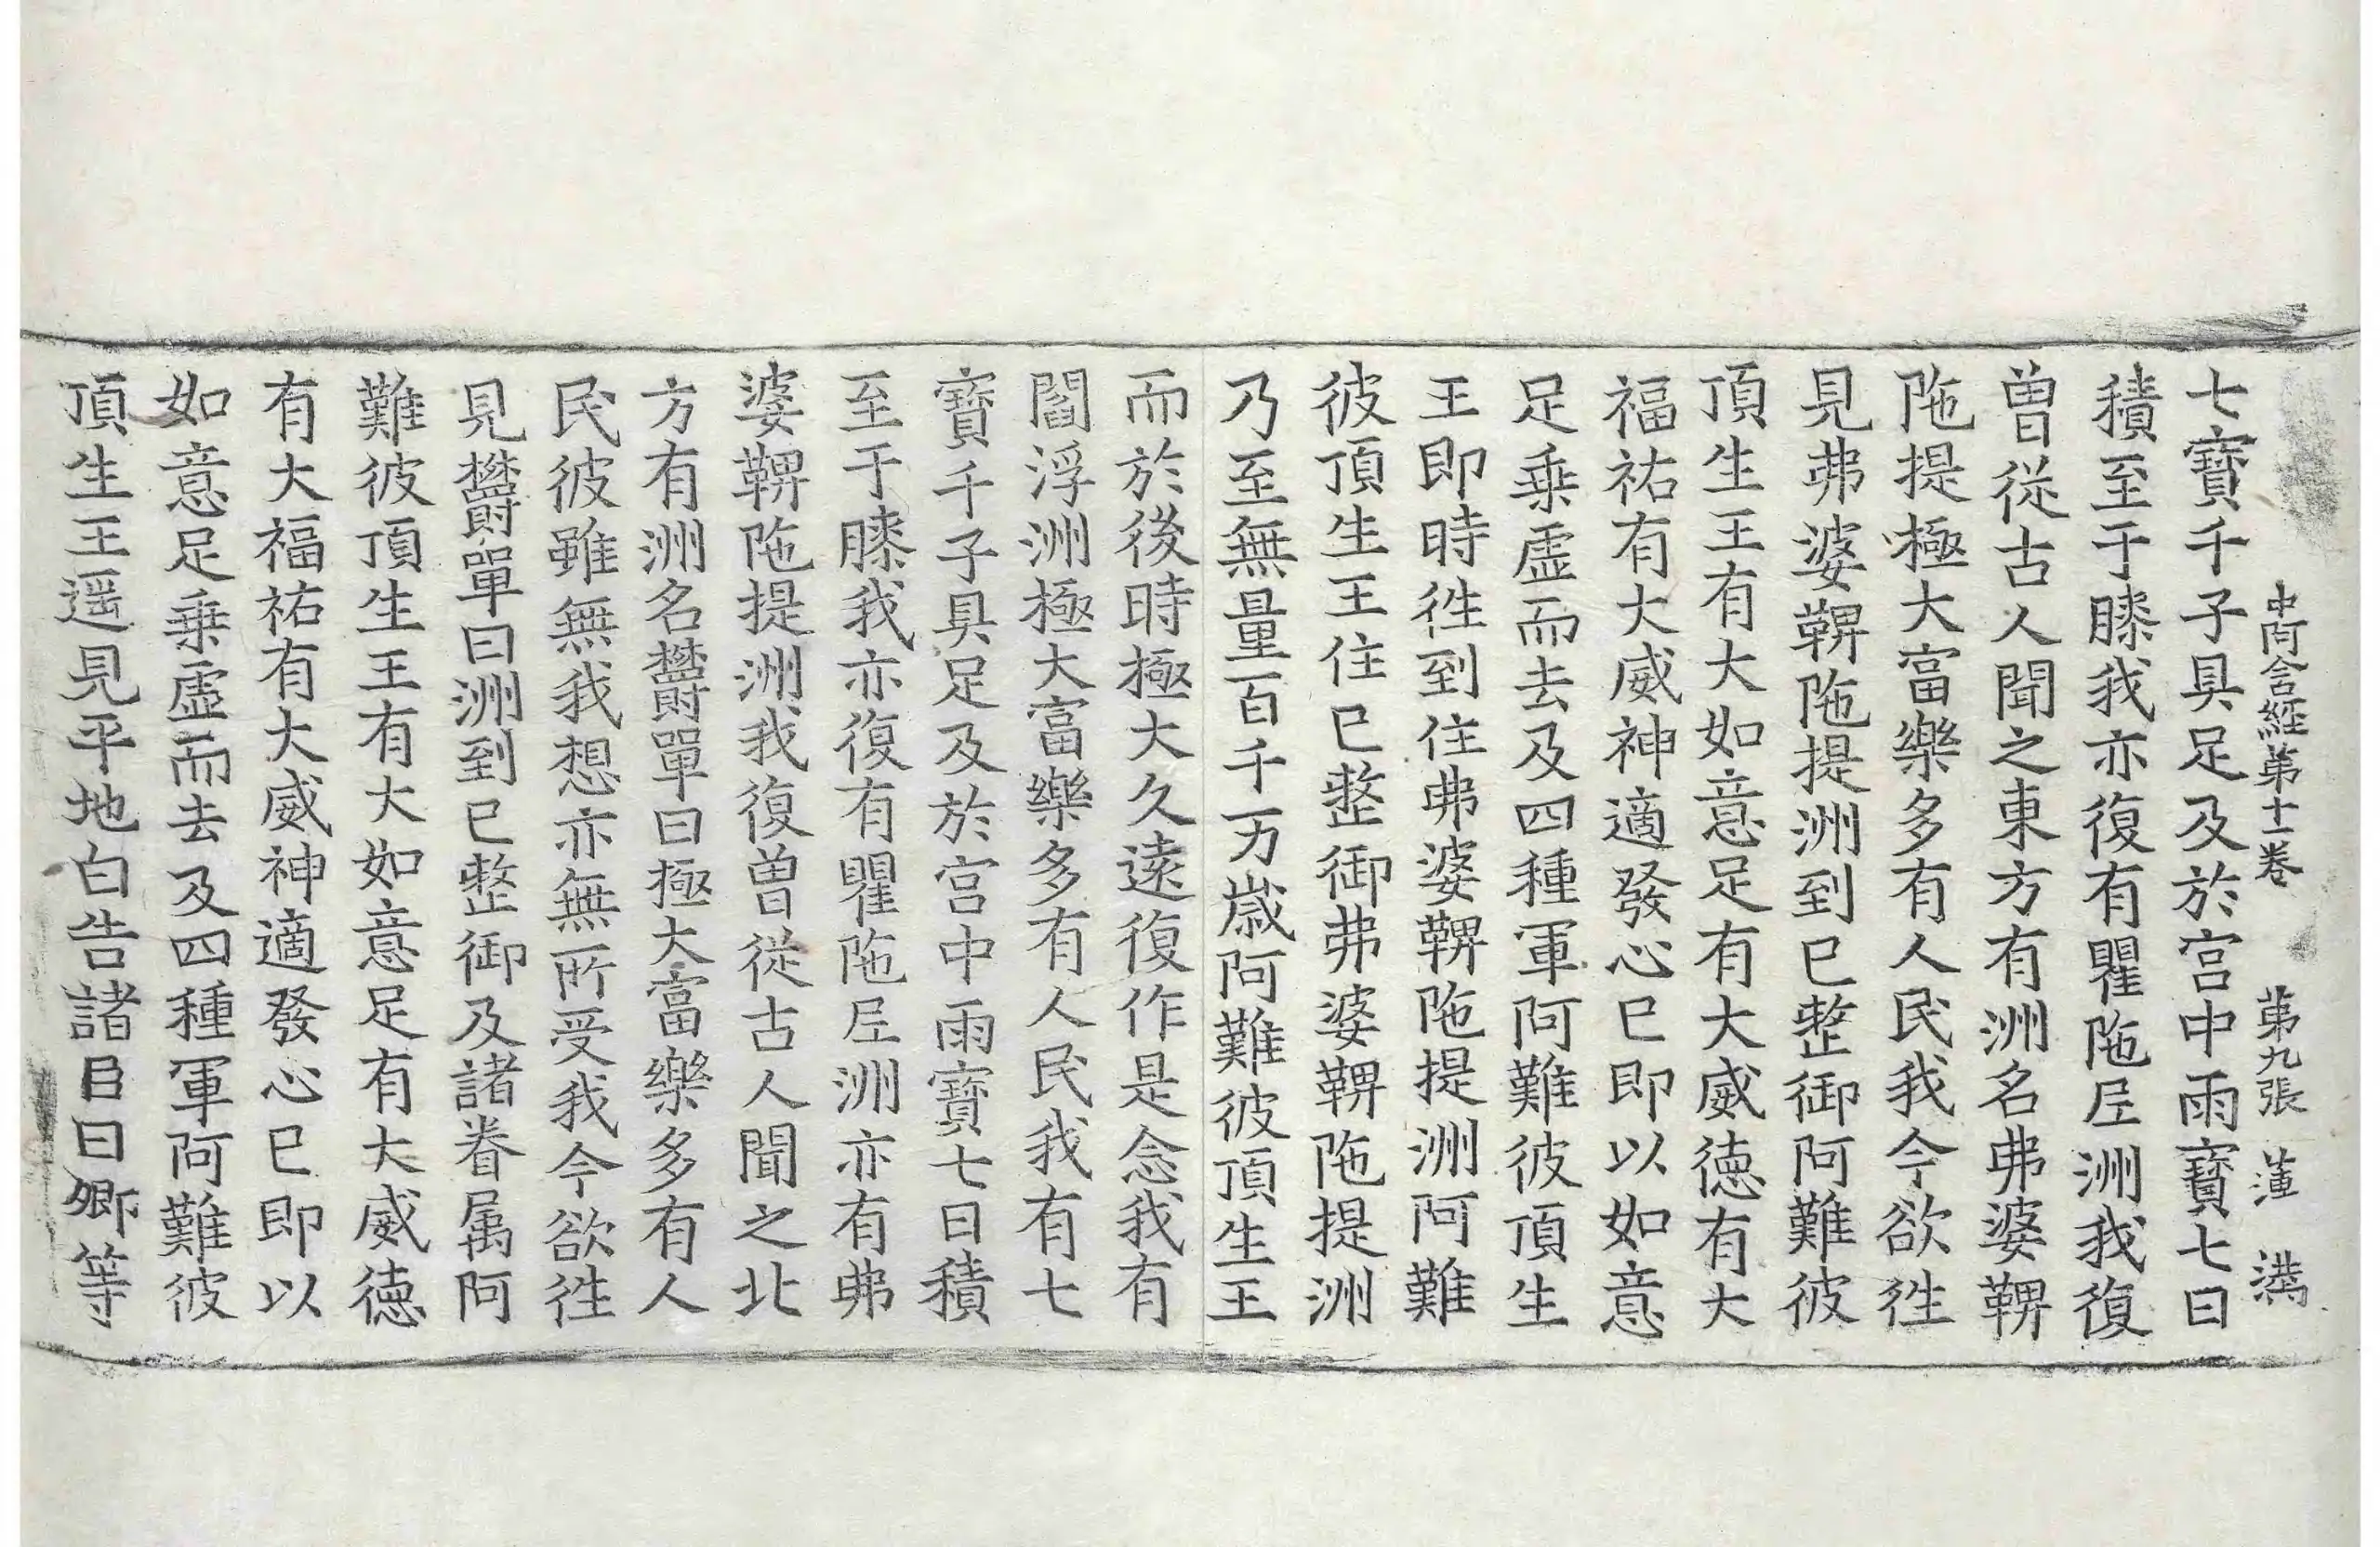 中阿含經第十一卷 第九張 蓮 満
七寶千子具足及於宫中雨寶七日
積至于膝我亦復有瞿陁尼洲我復
曽從古人聞之東方有洲名弗婆鞞
陁提極大富樂多有人民我今欲徃
見弗婆鞞陁提洲到已整御阿難彼
頂生王有大如意足有大威徳有大
福祐有大威神適發心已即以如意
足乗虛而去及四種軍阿難彼頂生
王即時徃到住弗婆鞞陁提洲阿難
彼頂生王住已整御弗婆鞞陁提洲
乃至無量百千万歳阿難彼頂生王
而於後時極大久遠復作是念我有
閻浮洲極大富樂多有人民我有七
寶千子具足及於宫中雨寶七日積
至于膝我亦復有瞿陁尼洲亦有弗
婆鞞陁提洲我復曽從古人聞之北
方有洲名欝單曰極大富樂多有人
民彼雖無我想亦無所受我今欲徃
見欝單曰洲到已整御及諸眷属阿
難彼頂生王有大如意足有大威徳
有大福祐有大威神適發心已即以
如意足乗虛而去及四種軍阿難彼
頂生王遥見平地白告諸臣曰卿等